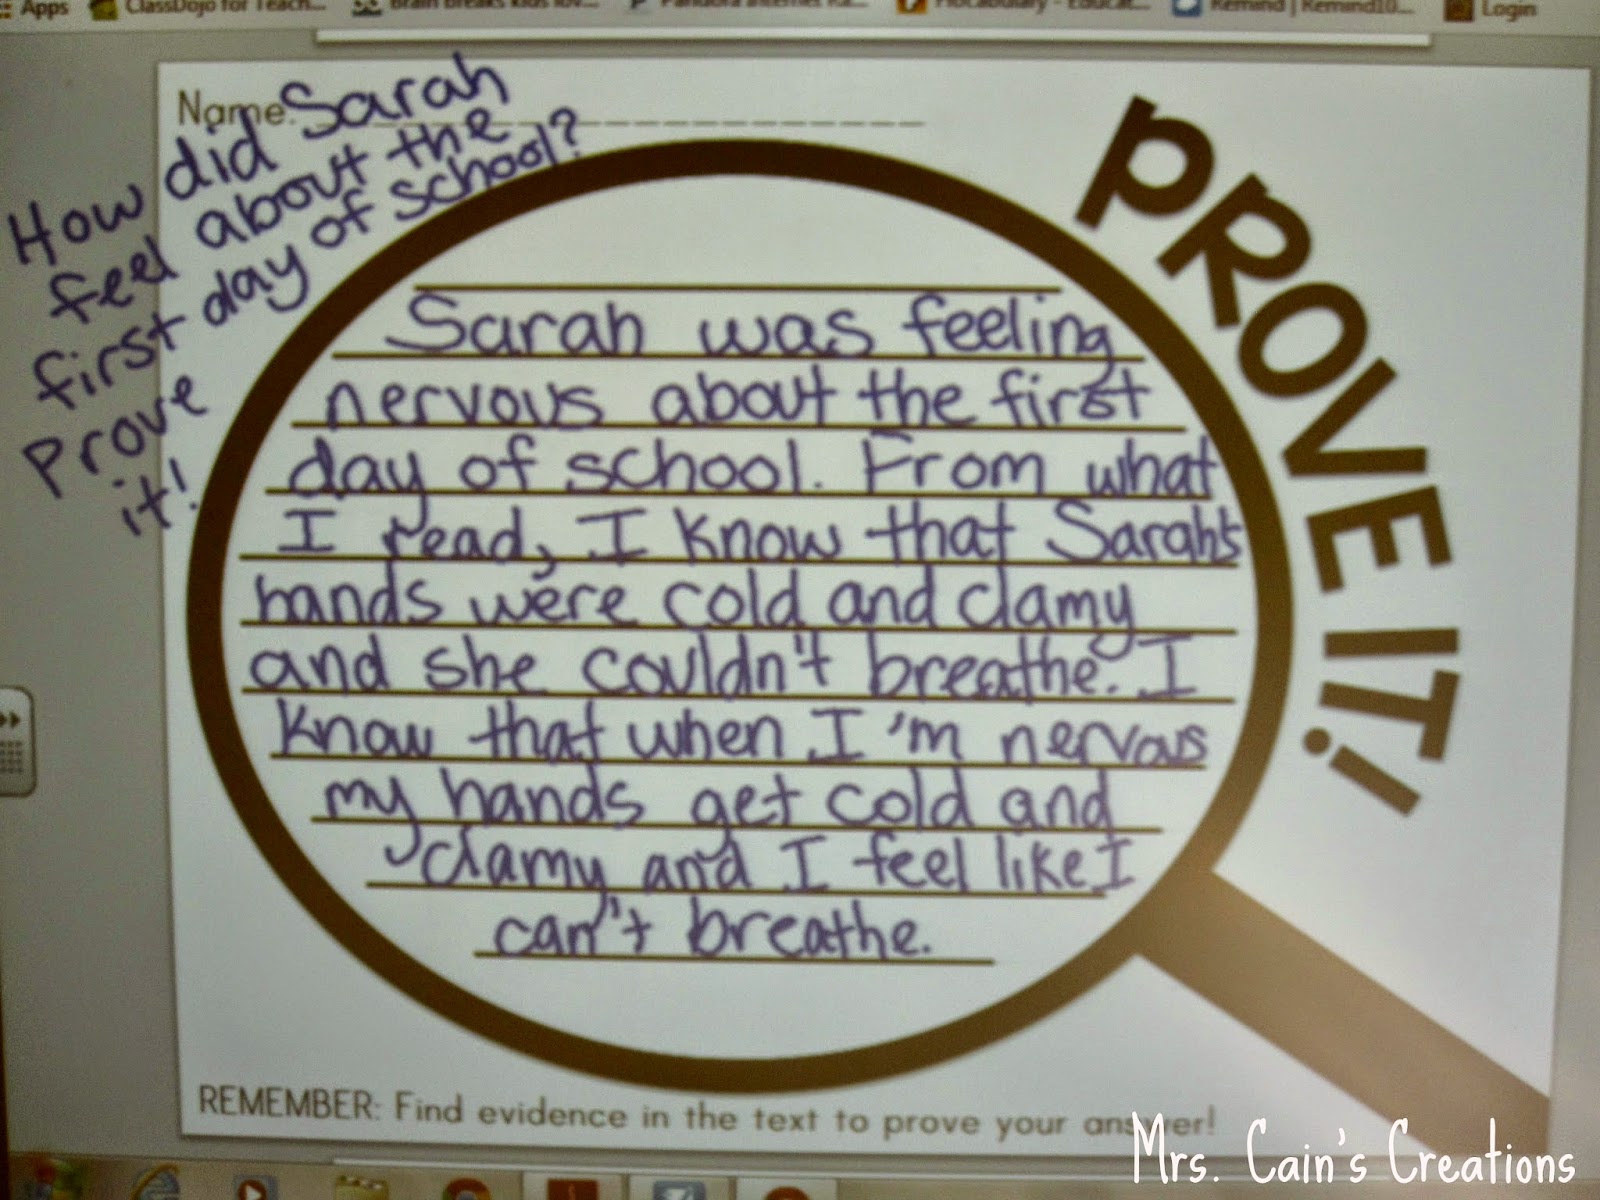 Apps ClassDojo for Teach... Brain breaks kids lov... Pandora Internet Ra... Flocabulary - Educat... Remind | Remind10... Login
Name:
How did Sarah
feel about the
first day of school?
Prove
it!
PROVE IT!
Sarah was feeling
nervous about the first
day of school. From what
I read, I know that Sarah's
hands were cold and clamy
and she couldn't breathe. I
know that when I'm nervous
my hands get cold and
clamy and I feel like I
can't breathe.
REMEMBER: Find evidence in the text to prove your answer!
Mrs. Cain's Creations